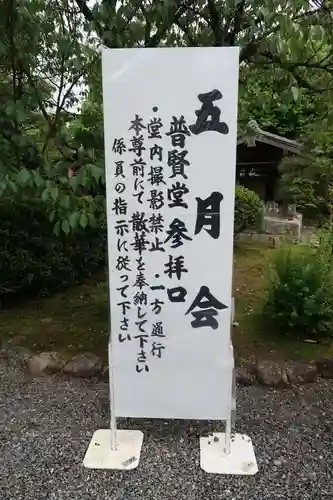 五月会
普賢堂参拝口
・堂内撮影禁止・一方通行
本尊前にて散華を奉納して下さい
係員の指示に従って下さい